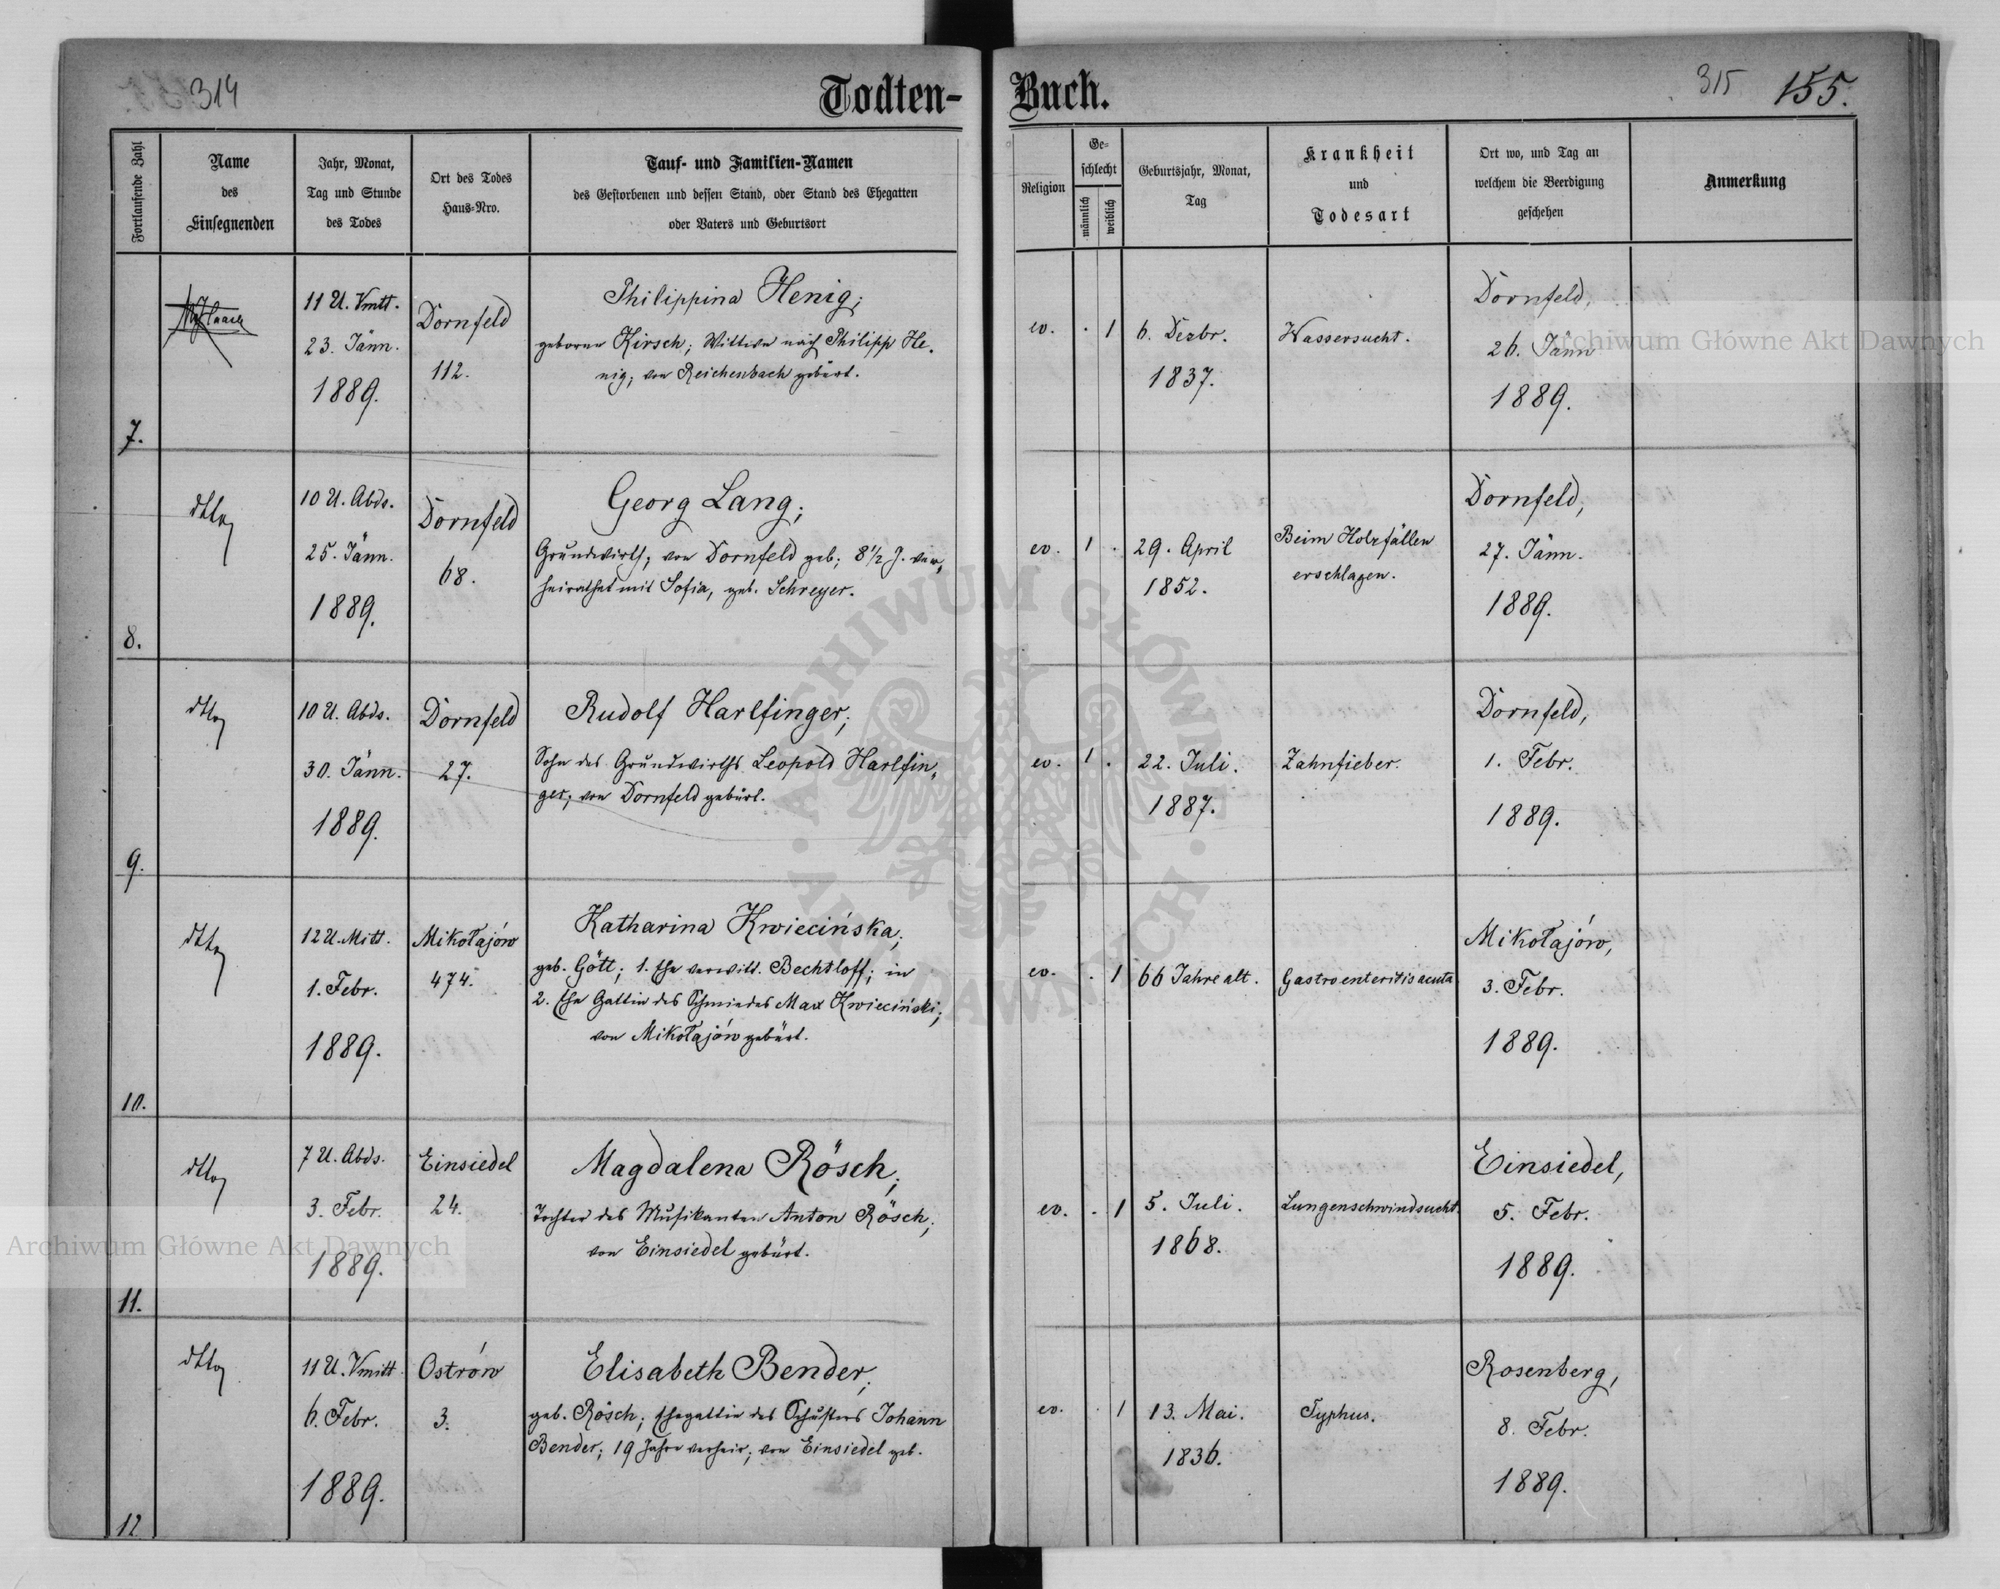 314
Todten-
Buch.
315
155.
Fortlaufende Zahl
Name
des
Einsegnenden
Jahr, Monat,
Tag und Stunde
des Todes
Ort des Todes
Haus-Nro.
Tauf- und Familien-Namen
des Gestorbenen und dessen Stand, oder Stand des Ehegatten
oder Vaters und Geburtsort
Religion
Ge-
schlecht
männlich
weiblich
Geburtsjahr, Monat,
Tag
Krankheit
und
Todesart
Ort wo, und Tag an
welchem die Beerdigung
geschehen
Anmerkung
7.
11 U. Vmtt.
23. Jänn.
1889.
Dornfeld
112.
Philippina Henig;
geborne Kirsch; Wittwe nach Philipp He-
nig; von Reichenbach gebürt.
ev. . 1
6. Dezbr.
1837.
Wassersucht.
Dornfeld,
26. Jänn
1889.
8.
dtto
10 U. Abds.
25. Jänn.
1889.
Dornfeld
68.
Georg Lang;
Grundwirth; von Dornfeld geb; 8 1/2 J. ver-
heirathet mit Sofia, geb. Schreyer.
ev. 1 .
29. April
1852.
Beim Holzfällen
erschlagen.
Dornfeld,
27. Jänn.
1889.
9.
dtto
10 U. Abds.
30. Jänn.
1889.
Dornfeld
27.
Rudolf Harlfinger;
Sohn des Grundwirths Leopold Harlfin-
ger; von Dornfeld gebürt.
ev. 1 .
22. Juli.
1887.
Zahnfieber.
Dornfeld,
1. Febr.
1889.
10.
dtto
12 U. Mitt.
1. Febr.
1889.
Mikołajów
474.
Katharina Kwiecińska;
geb. Gött; 1. Ehe verwitt. Bechtloff; in
2. Ehe Gattin des Schmiedes Max Kwieciński;
von Mikołajów gebürt.
ev. . 1
66 Jahre alt.
Gastroenteritis acuta
Mikołajów,
3. Febr.
1889.
11.
dtto
7 U. Abds.
3. Febr.
1889.
Einsiedel
24.
Magdalena Rösch;
Tochter des Musikanten Anton Rösch;
von Einsiedel gebürt.
ev. . 1
5. Juli.
1868.
Lungenschwindsucht.
Einsiedel,
5. Febr.
1889.
12
dtto
11 U. Vmitt
6. Febr.
1889.
Ostrów
3.
Elisabeth Bender;
geb. Rösch; Ehegattin des Schusters Johann
Bender; 19 Jahre verheir; von Einsiedel geb.
ev. . 1
13. Mai.
1836.
Typhus.
Rosenberg,
8. Febr.
1889.
Archiwum Główne Akt Dawnych
Archiwum Główne Akt Dawnych
ARCHIWUM GŁÓWNE AKT DAWNYCH